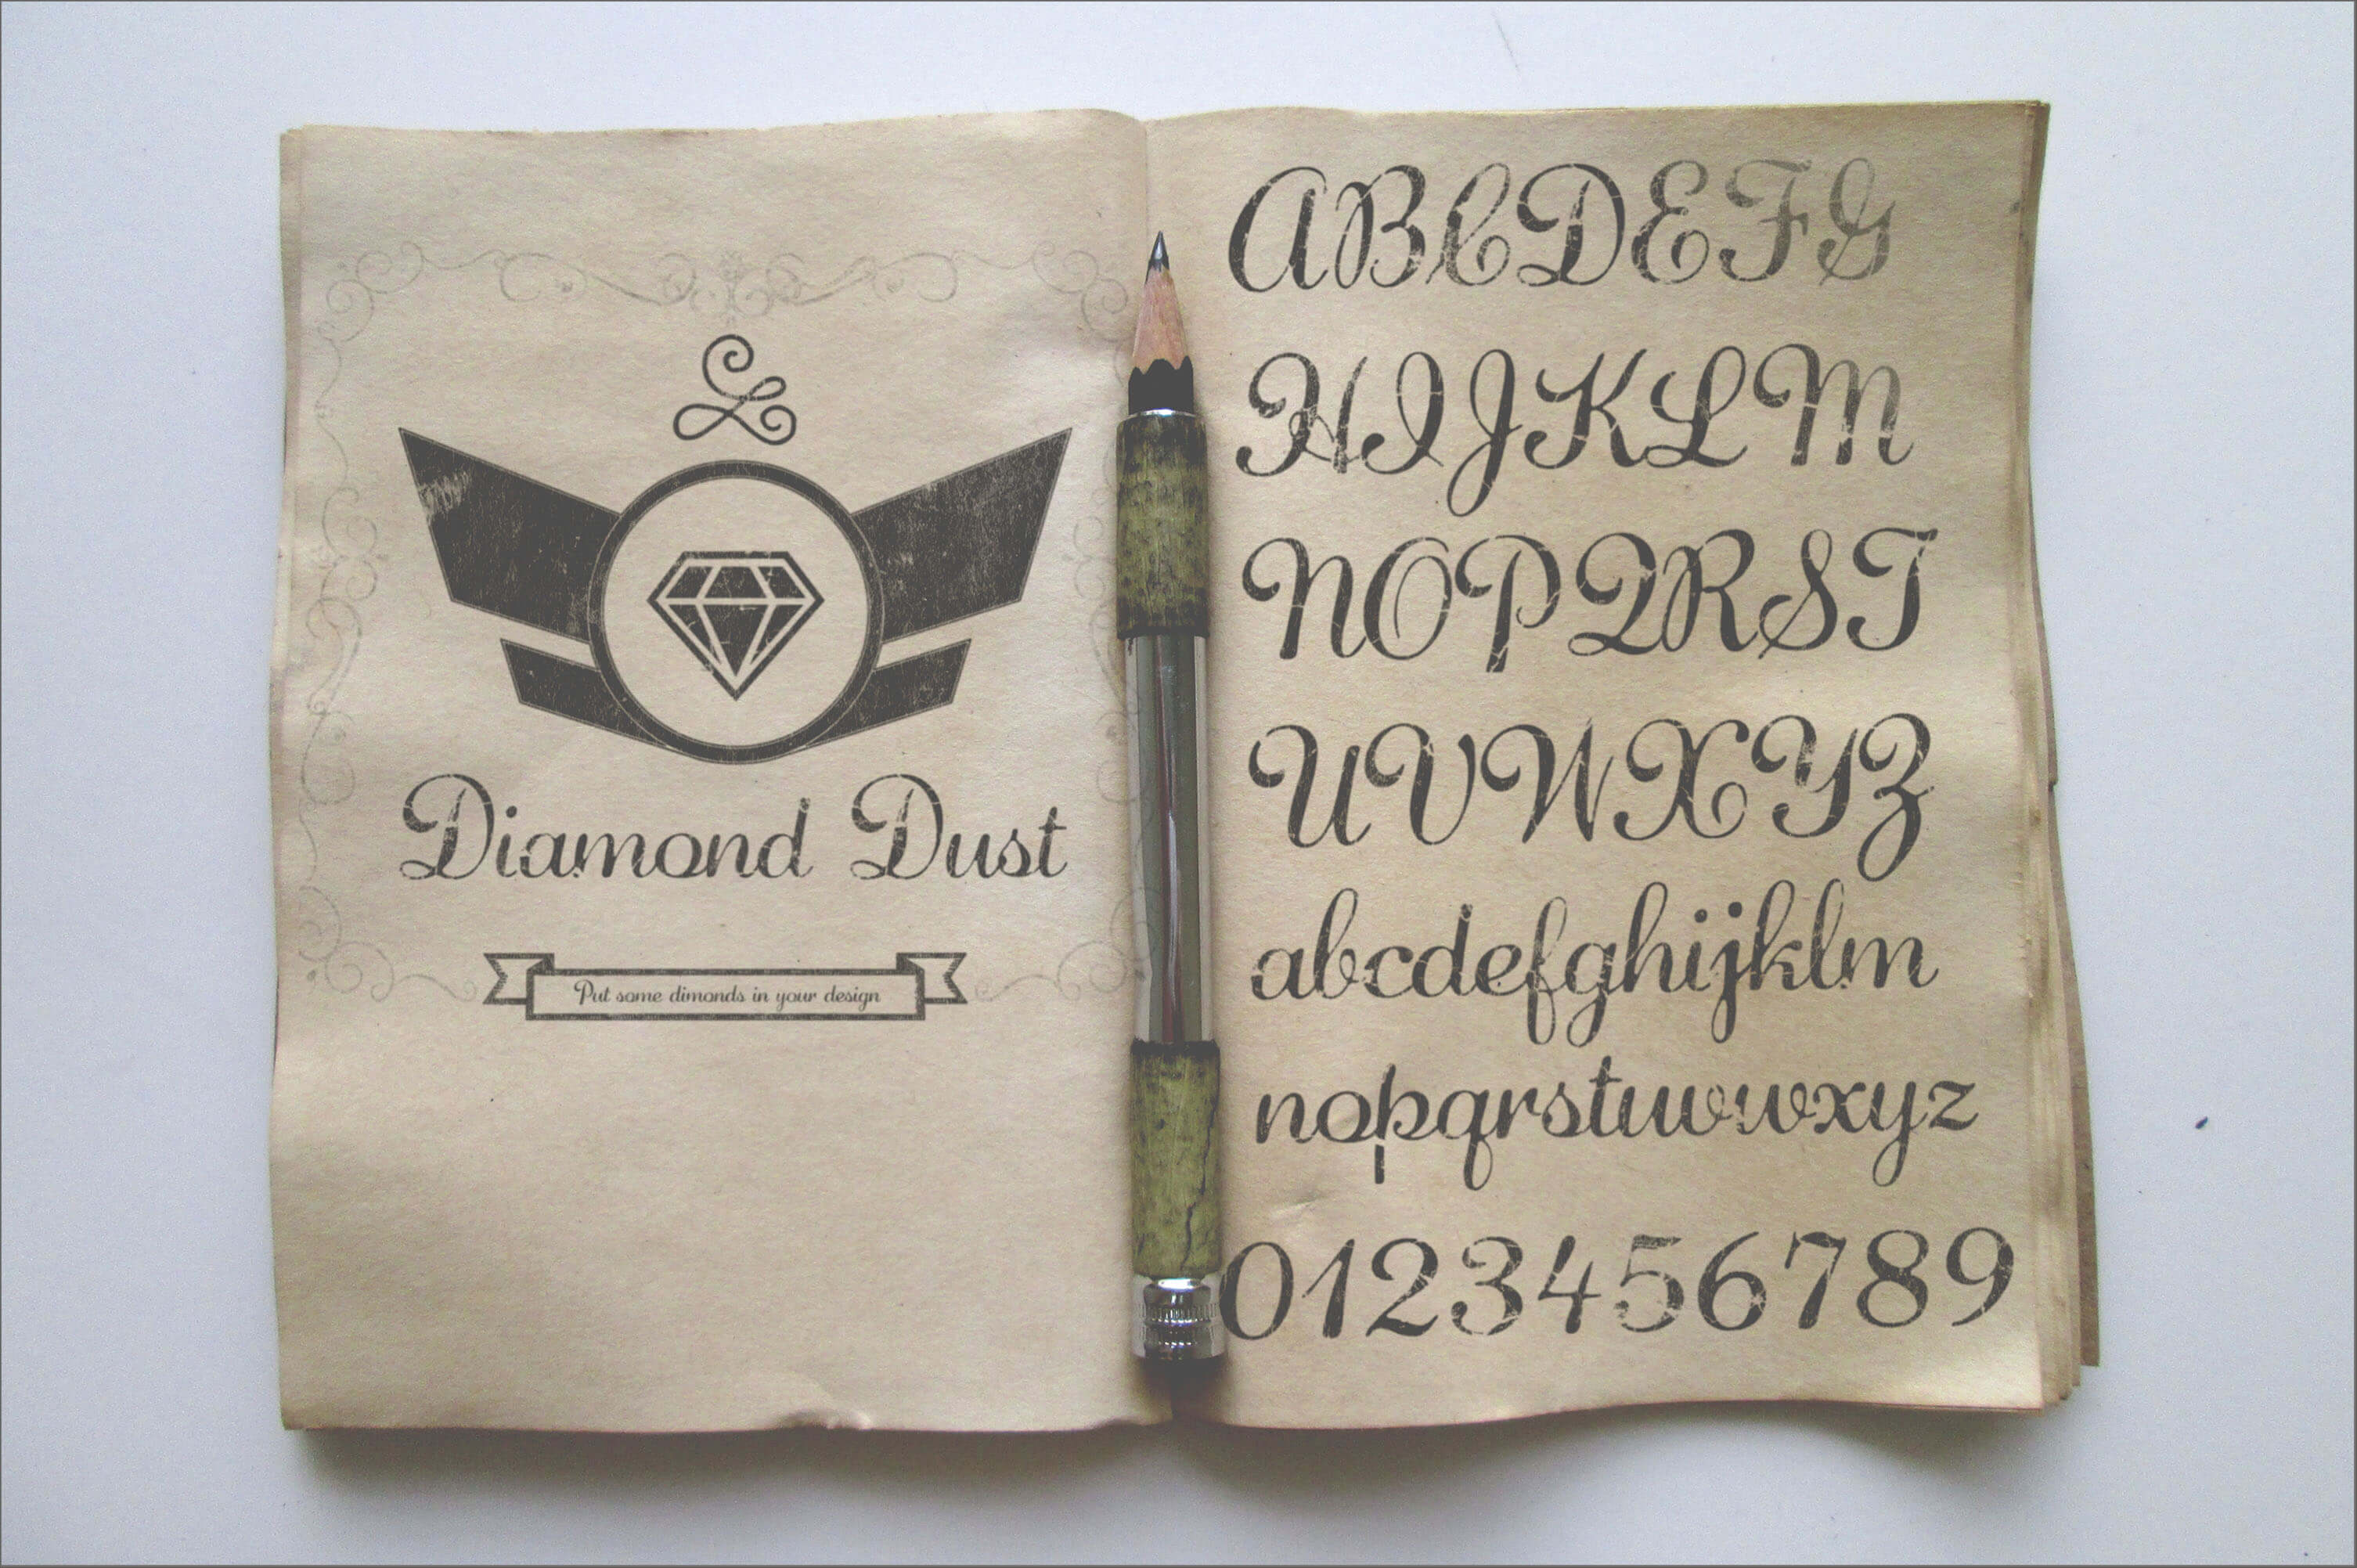 Diamond Dust
Put some dimonds in your design
ABCDEFG
HIJKLM
NOPQRST
UVWXYZ
abcdefghijklm
nopqrstuvwxyz
0123456789